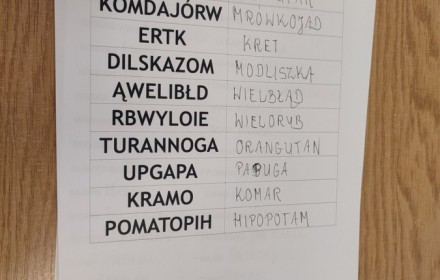 KOMDAJÓRW MRÓWKOJAD
ERTK KRET
DILSKAZOM MODLISZKA
ĄWELIBŁD WIELBŁĄD
RBWYLOIE WIELORYB
TURANNOGA ORANGUTAN
UPGAPA PAPUGA
KRAMO KOMAR
POMATOPIH HIPOPOTAM